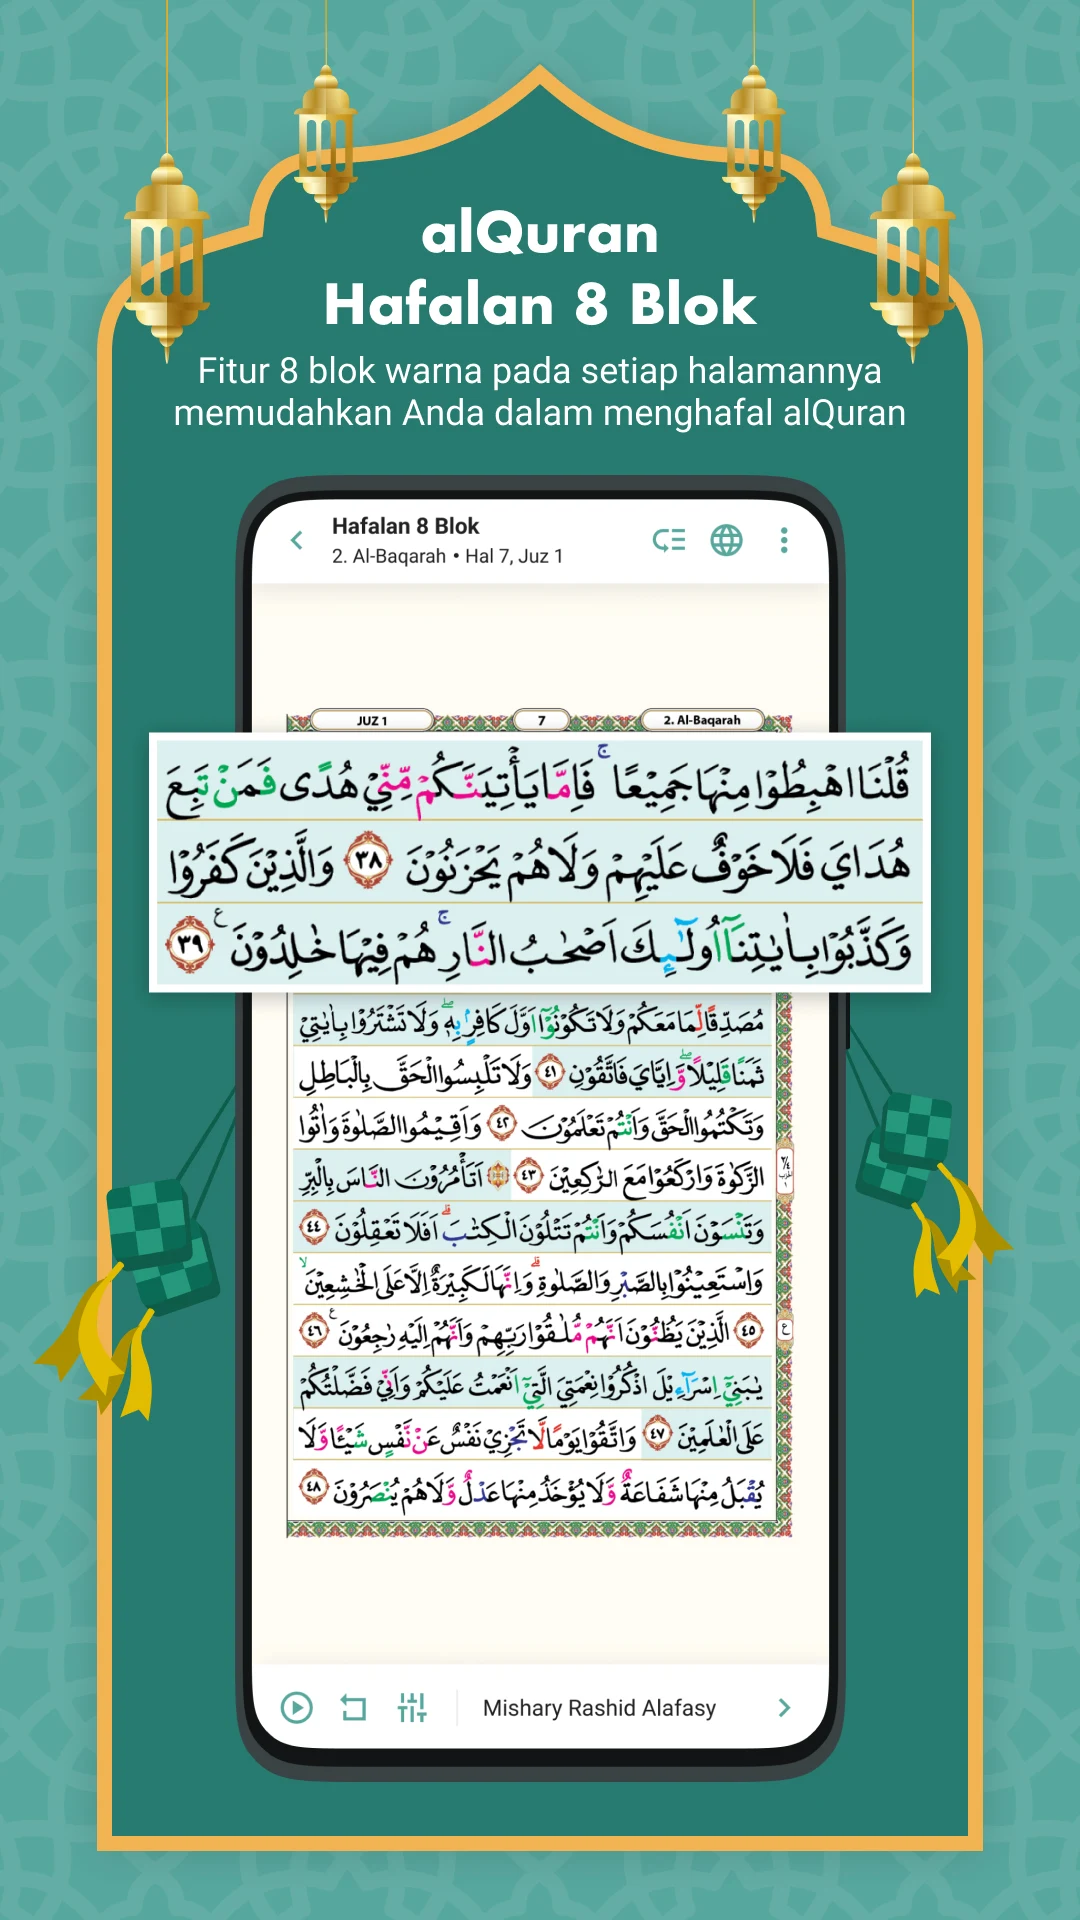 alQuran
Hafalan 8 Blok
Fitur 8 blok warna pada setiap halamannya
memudahkan Anda dalam menghafal alQuran
Hafalan 8 Blok
2. Al-Baqarah • Hal 7, Juz 1
JUZ 1
7
2. Al-Baqarah
قُلْنَا اهْبِطُوْا مِنْهَا جَمِيْعًا ۚ فَاِمَّا يَأْتِيَنَّكُمْ مِّنِّيْ هُدًى فَمَنْ تَبِعَ
هُدَايَ فَلَا خَوْفٌ عَلَيْهِمْ وَلَا هُمْ يَحْزَنُوْنَ ٣٨ وَالَّذِيْنَ كَفَرُوْا
وَكَذَّبُوْا بِاٰيٰتِنَآ اُولٰۤىِٕكَ اَصْحٰبُ النَّارِ ۚ هُمْ فِيْهَا خٰلِدُوْنَ ࣖ ٣٩
مُصَدِّقًا لِّمَا مَعَكُمْ وَلَا تَكُوْنُوْٓا اَوَّلَ كَافِرٍۢ بِهٖ ۖ وَلَا تَشْتَرُوْا بِاٰيٰتِيْ
ثَمَنًا قَلِيْلًا ۖ وَّاِيَّايَ فَاتَّقُوْنِ ٤١ وَلَا تَلْبِسُوا الْحَقَّ بِالْبَاطِلِ
وَتَكْتُمُوا الْحَقَّ وَاَنْتُمْ تَعْلَمُوْنَ ٤٢ وَاَقِيْمُوا الصَّلٰوةَ وَاٰتُوا
الزَّكٰوةَ وَارْكَعُوْا مَعَ الرّٰكِعِيْنَ ٤٣ ۞ اَتَأْمُرُوْنَ النَّاسَ بِالْبِرِّ
وَتَنْسَوْنَ اَنْفُسَكُمْ وَاَنْتُمْ تَتْلُوْنَ الْكِتٰبَ ۗ اَفَلَا تَعْقِلُوْنَ ٤٤
وَاسْتَعِيْنُوْا بِالصَّبْرِ وَالصَّلٰوةِ ۗ وَاِنَّهَا لَكَبِيْرَةٌ اِلَّا عَلَى الْخٰشِعِيْنَ ۙ
٤٥ الَّذِيْنَ يَظُنُّوْنَ اَنَّهُمْ مُّلٰقُوْا رَبِّهِمْ وَاَنَّهُمْ اِلَيْهِ رٰجِعُوْنَ ࣖ ٤٦
يٰبَنِيْٓ اِسْرَاۤءِيْلَ اذْكُرُوْا نِعْمَتِيَ الَّتِيْٓ اَنْعَمْتُ عَلَيْكُمْ وَاَنِّيْ فَضَّلْتُكُمْ
عَلَى الْعٰلَمِيْنَ ٤٧ وَاتَّقُوْا يَوْمًا لَّا تَجْزِيْ نَفْسٌ عَنْ نَّفْسٍ شَيْـًٔا وَّلَا
يُقْبَلُ مِنْهَا شَفَاعَةٌ وَّلَا يُؤْخَذُ مِنْهَا عَدْلٌ وَّلَا هُمْ يُنْصَرُوْنَ ٤٨
ع
Mishary Rashid Alafasy